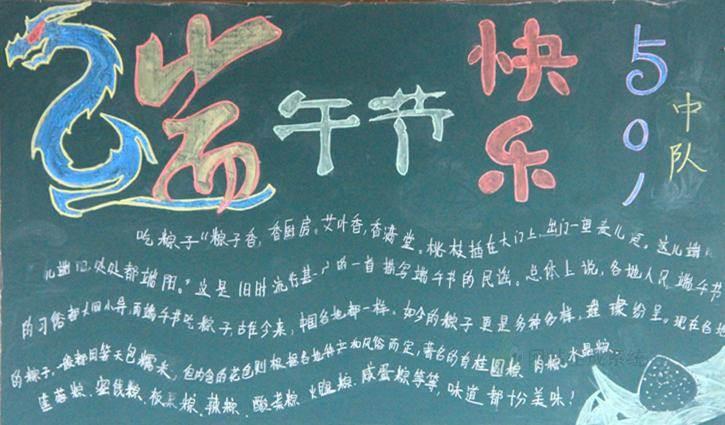 端午节快乐
501
中队
吃粽子“粽子香,香厨房。艾叶香,香满堂。桃枝插在大门上,出门一望麦儿黄。这儿端
儿端阳处处都端阳。”这是旧时流传甚广的一首描写端午节的民谣。总体上说,各地人民端午节
的习俗大同小异,而端午节吃粽子,古往今来,中国各地都一样。如今的粽子更是多种多样,璀璨纷呈。现在各地
的粽子,一般都用箬包糯米,但内含的花色则根据各地特产和风俗而定,著名的有桂圆粽、肉粽、水晶粽、
莲蓉粽、蜜饯粽、板栗粽、辣粽、酸菜粽、火腿粽、咸蛋粽等等,味道都十分美味!